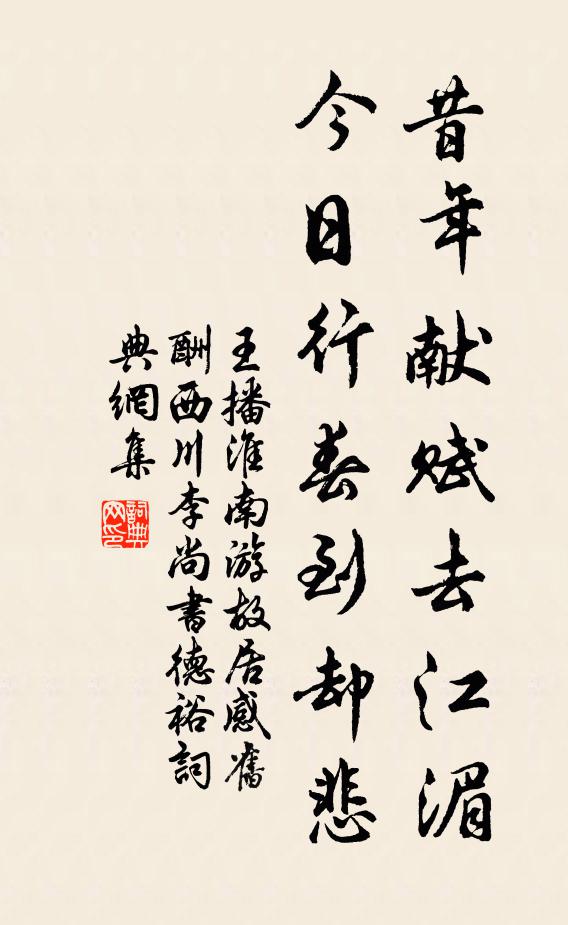 昔年献赋去江湄
今日行春到却悲
王播淮南游故居感舊
酬西川李尚書德裕詞
典網集
詞典
网印